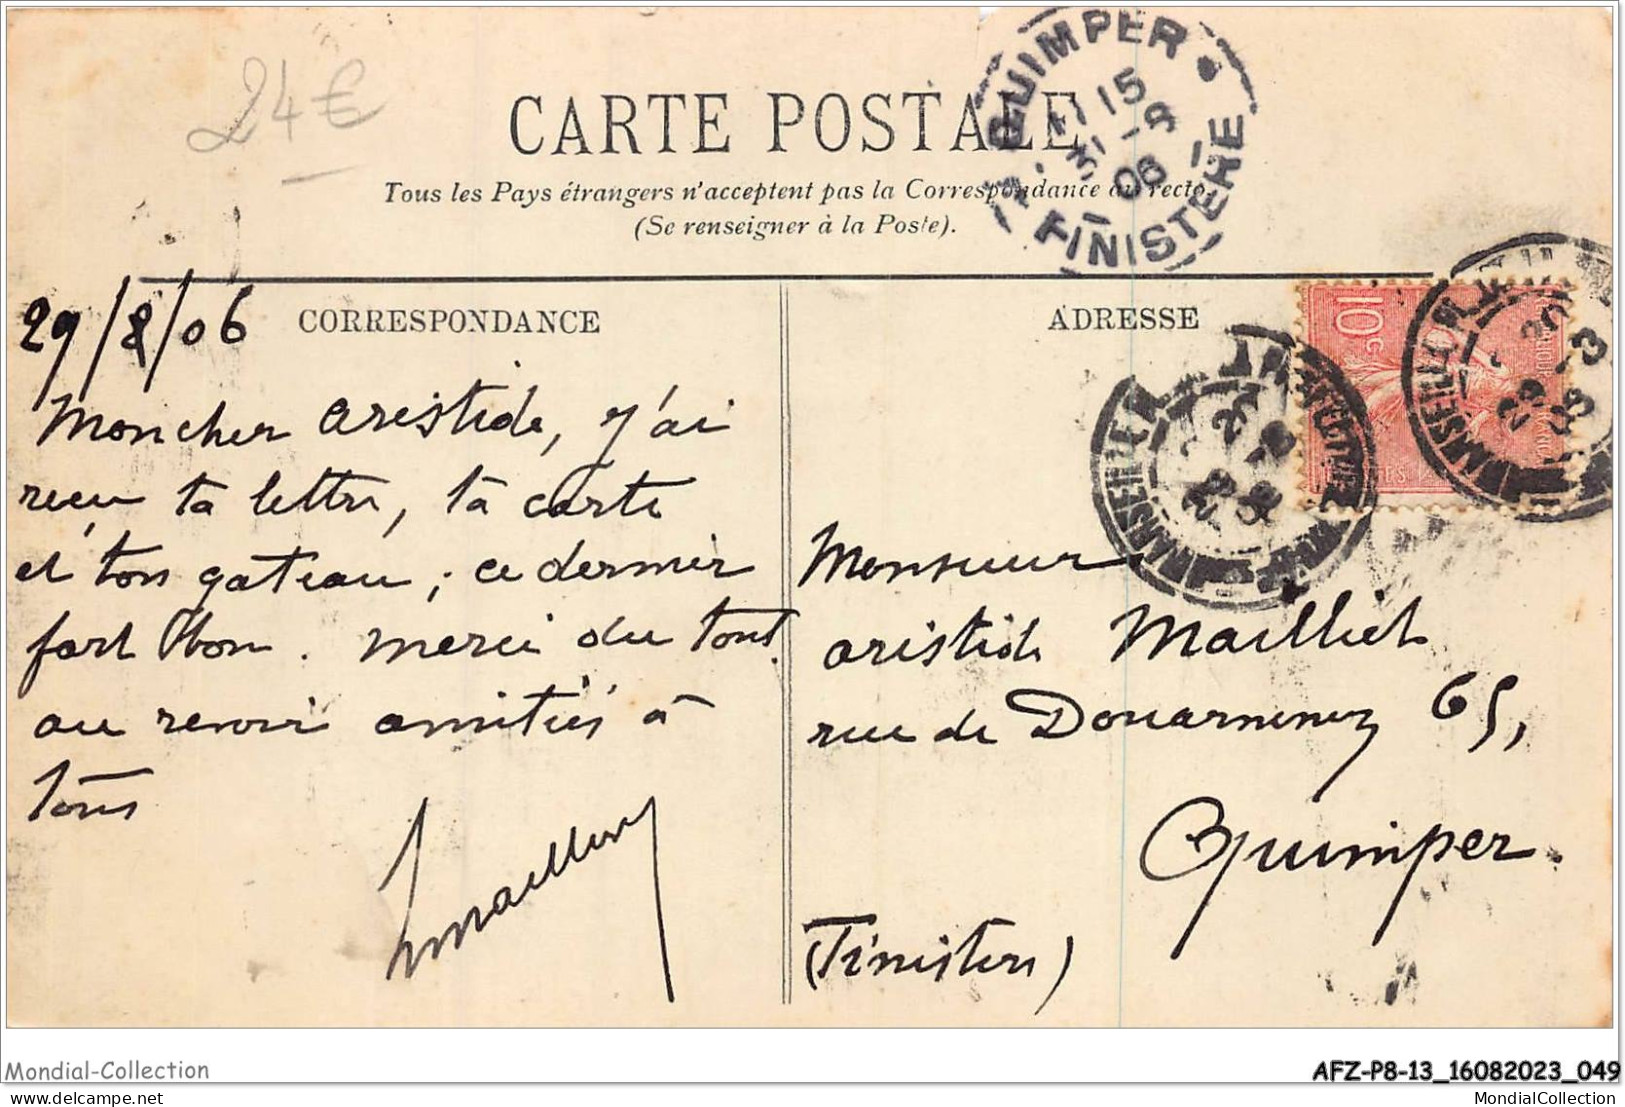 24€
CARTE POSTALE
Tous les Pays étrangers n'acceptent pas la Correspondance au recto.
(Se renseigner à la Poste).
QUIMPER
11 15
31-8
06
FINISTERE
CORRESPONDANCE
29/8/06
Mon cher aristide, j'ai
reçu ta lettre, ta carte
et ton gateau, ce dernier
fort bon. merci du tout.
au revoir amitiés à
tous
ADRESSE
10c
MARSEILLE
MARSEILLE
Monsieur
aristide Mailliet
rue de Douarnenez 65,
Quimper.
(Finistère)
Mondial-Collection
AFZ-P8-13_16082023_049
www.delcampe.net
MondialCollection